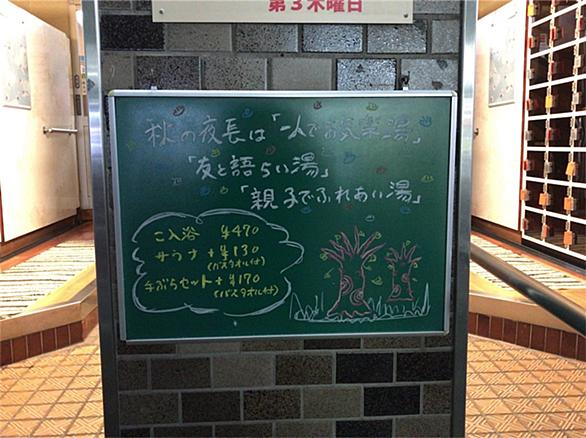 第3木曜日
秋の夜長は「一人でお気楽湯」
「友と語らい湯」
「親子でふれあい湯」
ご入浴 ¥470
サウナ +¥130
(バスタオル付)
手ぶらセット+¥170
(バスタオル付)